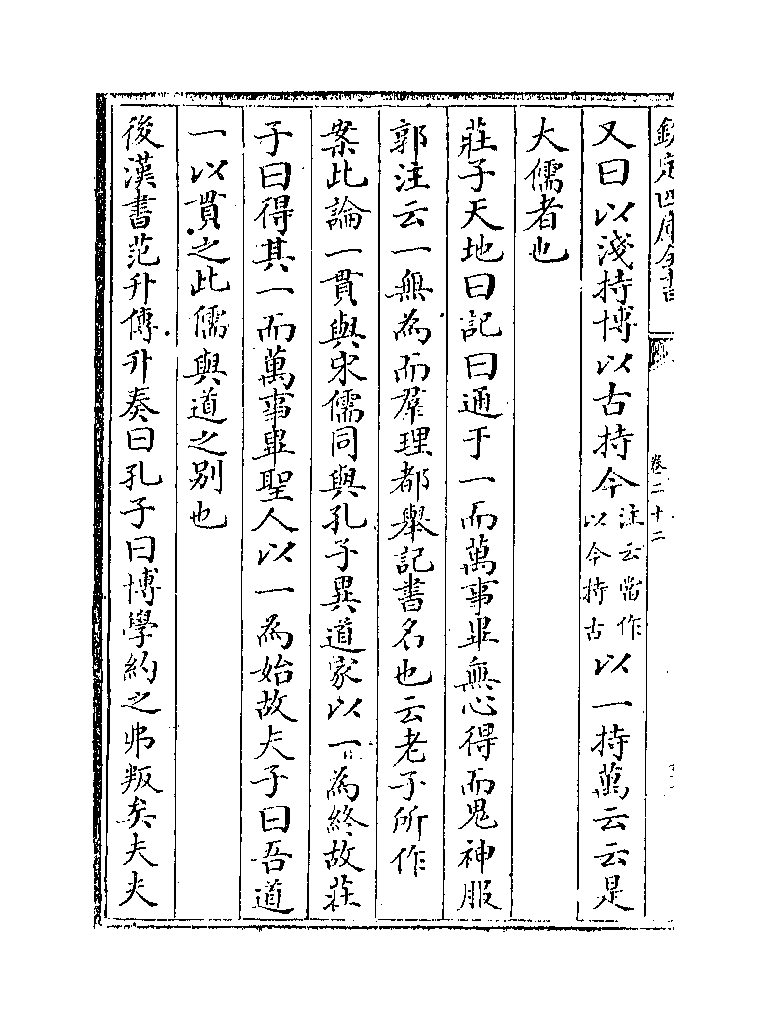 欽定四庫全書
卷二十二
又曰以淺持博以古持今注云當作以今持古以一持萬云云是
大儒者也
莊子天地曰記曰通于一而萬事畢無心得而鬼神服
郭注云一無為而羣理都舉記書名也云老子所作
案此論一貫與宋儒同與孔子異道家以一為終故莊
子曰得其一而萬事畢聖人以一為始故夫子曰吾道
一以貫之此儒與道之別也
後漢書范升傳升奏曰孔子曰博學約之弗叛矣夫夫